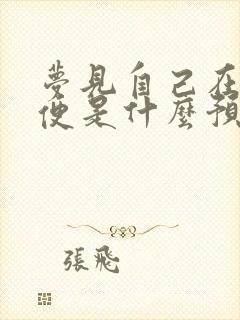 夢見自己在
便是什麼預
張飛